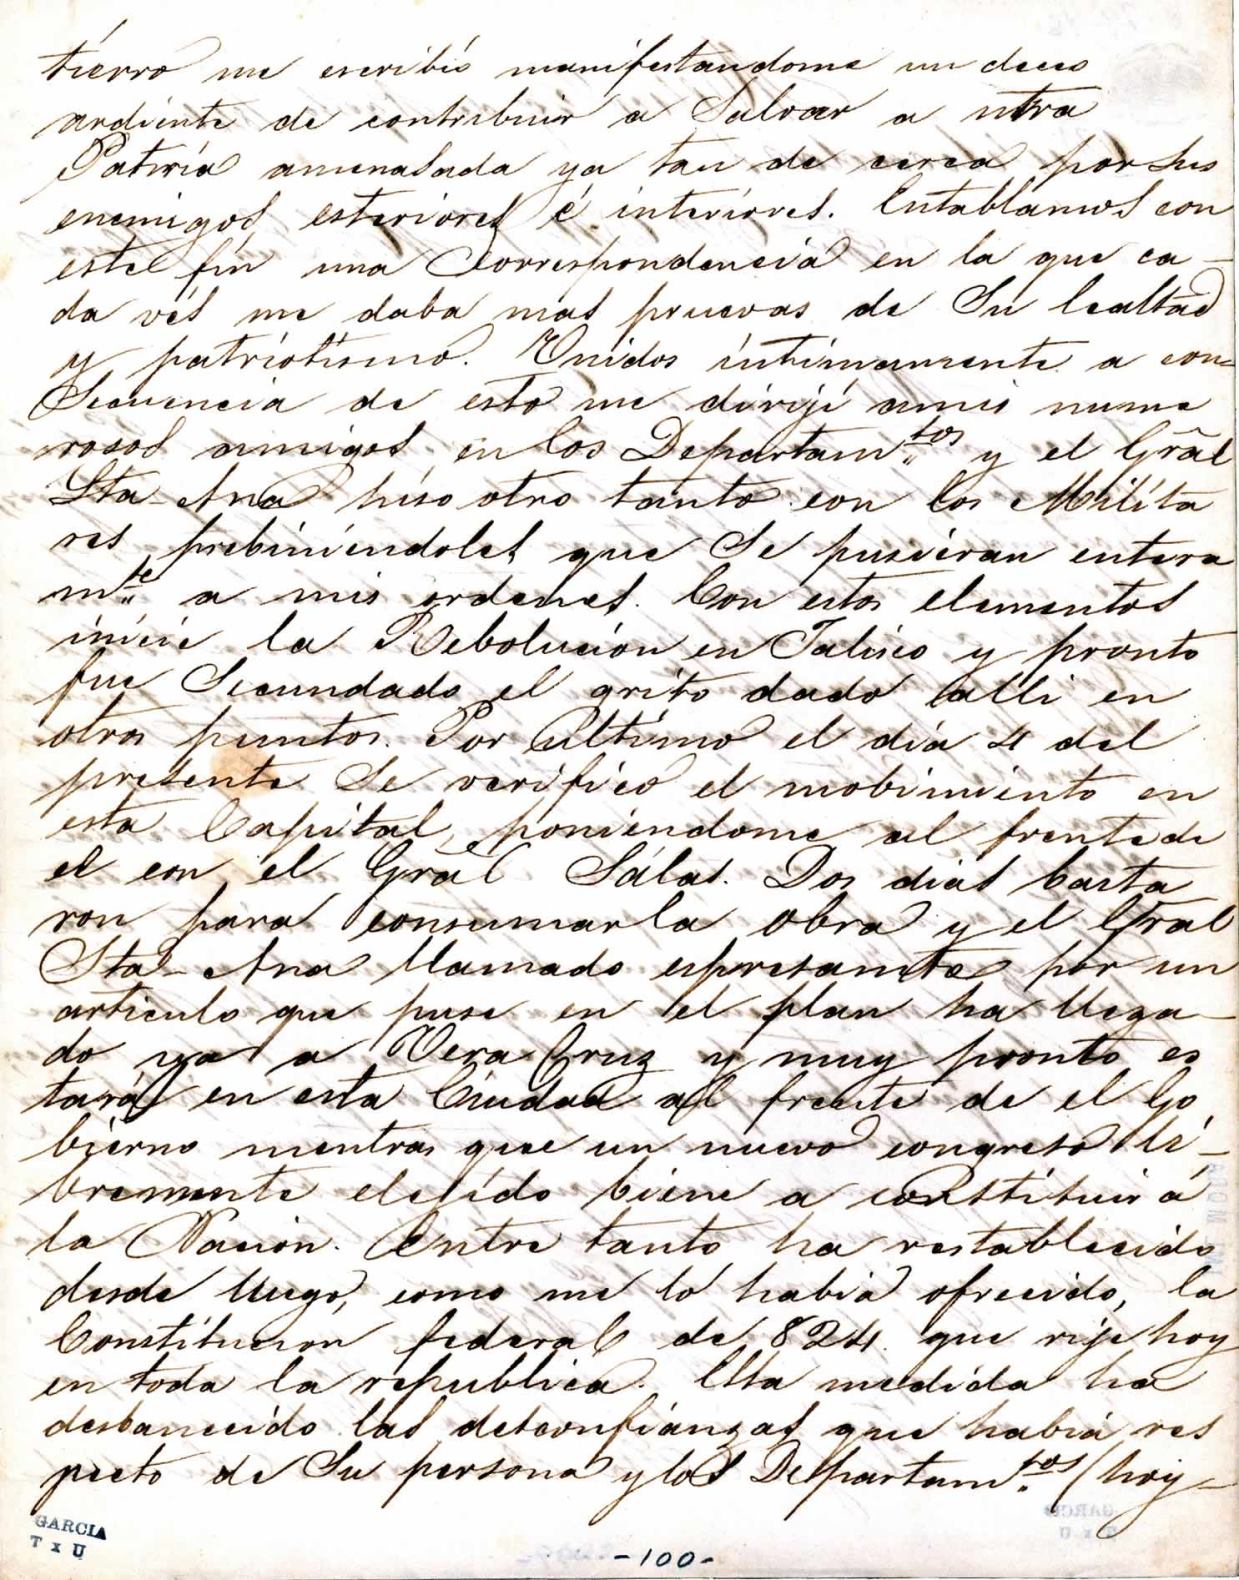 tierro me escribió manifestandome un deceo
ardiente de contribuir a Salvar a ntra
Patria amenasada ya tan de cerca por sus
enemigos esteriores é interirres. Entablamos con
este fin una Correspondencia en la que ca-
da vés me daba mas pruevas de Su lealtad
y patriotismo. Unidos intimamente a con-
Secuencia de esto me dirijí a mis nume
rosos amigos en los Departam.tos y el Grãl
Sta-Ana hiso otro tanto con los Milita
res, prebiniendoles que Se pusieran entera
m.te a mis ordenes. Con estos elementos
inicié la Rebolucion en Jalisco y pronto
fue Secundado el grito dado alli en
otros puntos. Por ultimo el dia 4 del
presente Se verificó el mobimiento en
esta Capital, poniendome al frente de
el con el Grãl Sálas. Dos dias basta
ron para consumar la obra y el Grãl
Sta-Ana llamado espresamte por un
articulo que puse en el plan ha llega-
do ya a Vera Cruz y muy pronto es
tará en esta Ciudad al frente de el Go
bierno mentras que un nuevo congreso li-
bremente elejido biene a constituir á
la Nacion. Entre tanto ha restablecido
desde luego, como me lo habia ofrecido, la
Constitucion federal de 824 que rije hoy
en toda la republica. Esta medida ha
desbanecido las desconfianzas que habia res
pecto de Su persona y los Departam.tos (hoy-
GARCIA
T x U
-100-